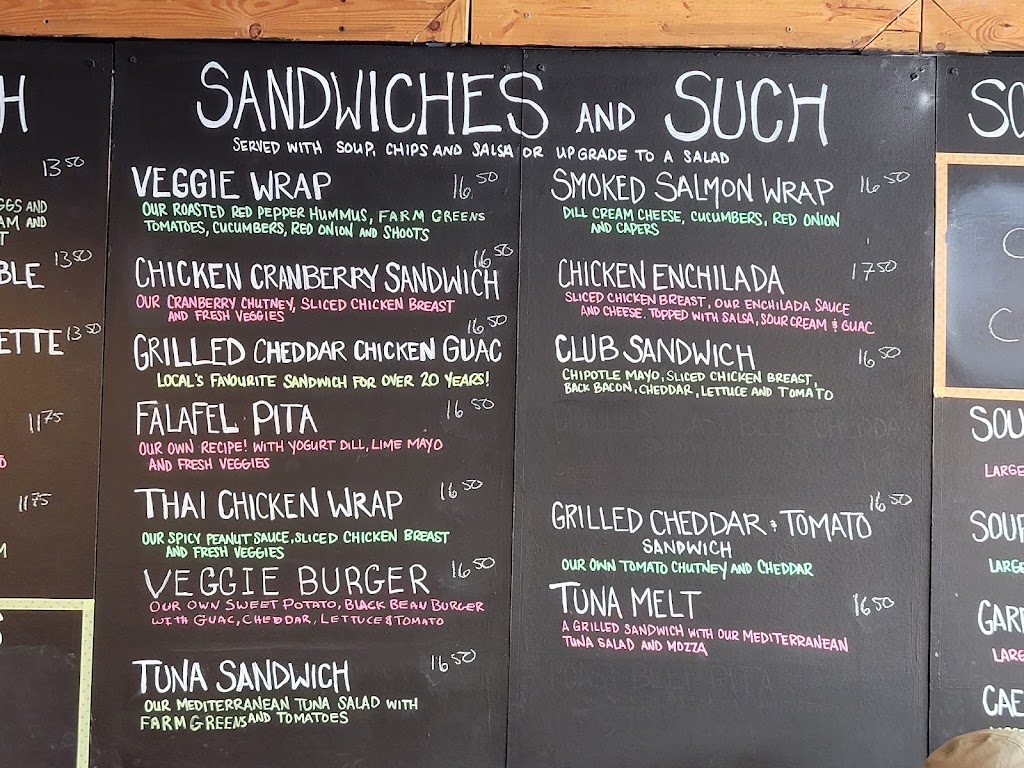 H
13 50
GGS AND
AM AND
T
13 50
BLE
ETTE 13 50
11 75
11 75
M
S
SANDWICHES AND SUCH
SERVED WITH SOUP, CHIPS AND SALSA OR UPGRADE TO A SALAD
VEGGIE WRAP 16 50
OUR ROASTED RED PEPPER HUMMUS, FARM GREENS
TOMATOES, CUCUMBERS, RED ONION AND SHOOTS
CHICKEN CRANBERRY SANDWICH 16 50
OUR CRANBERRY CHUTNEY, SLICED CHICKEN BREAST
AND FRESH VEGGIES
GRILLED CHEDDAR CHICKEN GUAC 16 50
LOCAL'S FAVOURITE SANDWICH FOR OVER 20 YEARS!
FALAFEL PITA 16 50
OUR OWN RECIPE! WITH YOGURT DILL, LIME MAYO
AND FRESH VEGGIES
THAI CHICKEN WRAP 16 50
OUR SPICY PEANUT SAUCE, SLICED CHICKEN BREAST
AND FRESH VEGGIES
VEGGIE BURGER 16 50
OUR OWN SWEET POTATO, BLACK BEAN BURGER
WITH GUAC, CHEDDAR, LETTUCE & TOMATO
TUNA SANDWICH 16 50
OUR MEDITERRANEAN TUNA SALAD WITH
FARM GREENS AND TOMATOES
SMOKED SALMON WRAP 16 50
DILL CREAM CHEESE, CUCUMBERS, RED ONION
AND CAPERS
CHICKEN ENCHILADA 17 50
SLICED CHICKEN BREAST, OUR ENCHILADA SAUCE
AND CHEESE. TOPPED WITH SALSA, SOUR CREAM & GUAC
CLUB SANDWICH 16 50
CHIPOTLE MAYO, SLICED CHICKEN BREAST,
BACK BACON, CHEDDAR, LETTUCE AND TOMATO
GRILLED CHEDDAR & TOMATO 16 50
SANDWICH
OUR OWN TOMATO CHUTNEY AND CHEDDAR
TUNA MELT 16 50
A GRILLED SANDWICH WITH OUR MEDITERRANEAN
TUNA SALAD AND MOZZA
SO
C
C
SOU
LARGE
SOUP
LARGE
GAR
LARG
CAE